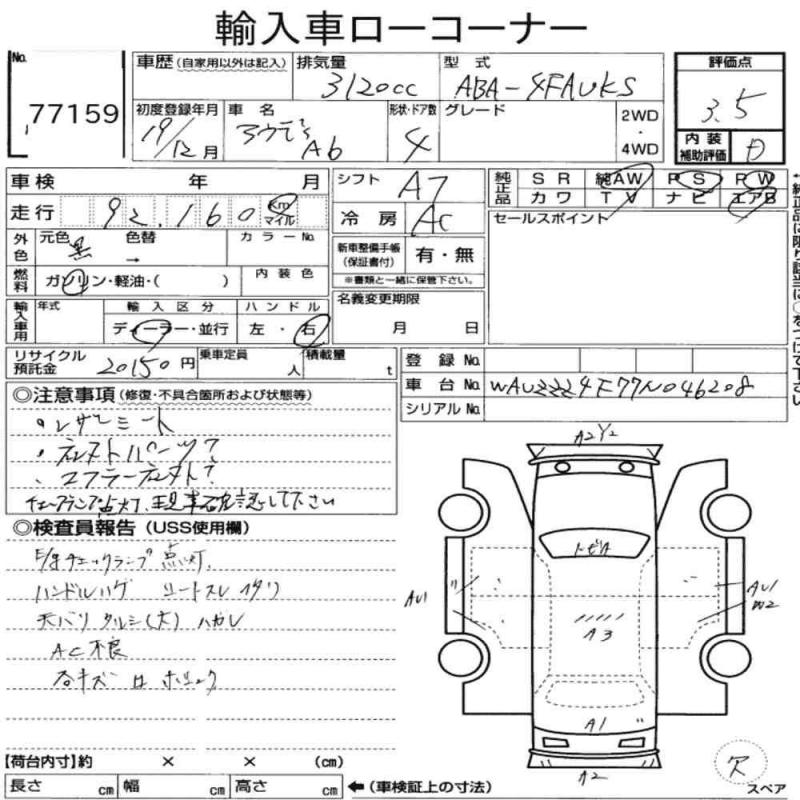 輸入車ローコーナー
No.
77159
車歴 (自家用以外は記入)
排気量
3120cc
型式
ABA-4FAUKS
評価点
3.5
初度登録年月
19/12月
車名
アウディ A6
形状・ドア数
4
グレード
2WD・4WD
内装補助評価
D
車検 年 月
シフト
A7
純正品
SR 純AW PS PW
カワ TV ナビ エアB
走行
92,160 Km マイル
冷房
AC
セールスポイント
外色
元色 黒
色替 →
カラーNo.
新車整備手帳(保証書付)
有・無
※書類と一緒に保管下さい。
燃料
ガソリン・軽油・( )
内装色
名義変更期限
月 日
輸入車用
年式
輸入区分
ディーラー・並行
ハンドル
左・右
リサイクル預託金
20150円
乗車定員
人
積載量
t
登録No.
車台No.
WAUZZZ4F77N046208
シリアルNo.
◎注意事項 (修復・不具合箇所および状態等)
・レザーシート
・
・マフラー
チェックランプ点灯、現車確認して下さい
◎検査員報告 (USS使用欄)
E/gチェックランプ点灯
ハンドルハゲ シートスレ
天バリタルミ(大) ハガレ
AC不良
A2Y2
トビA
AU1
AU1
W2
A3
A1
A2
【荷台内寸】約 × × (cm)
長さ cm 幅 cm 高さ cm
←(車検証上の寸法)
欠
スペア